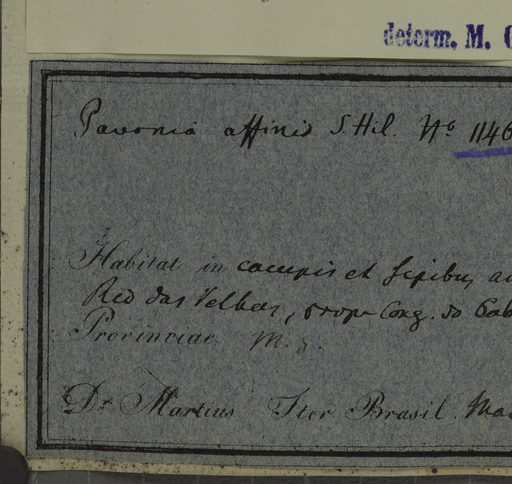 determ. M.
Pavonia affinis S. Hil. No 1146
Habitat in campis et sepibus ad
Rio das Velhas, prope Cong. do Sab
Provinciae M. G.
Dr Martius Iter Brasil. Ma